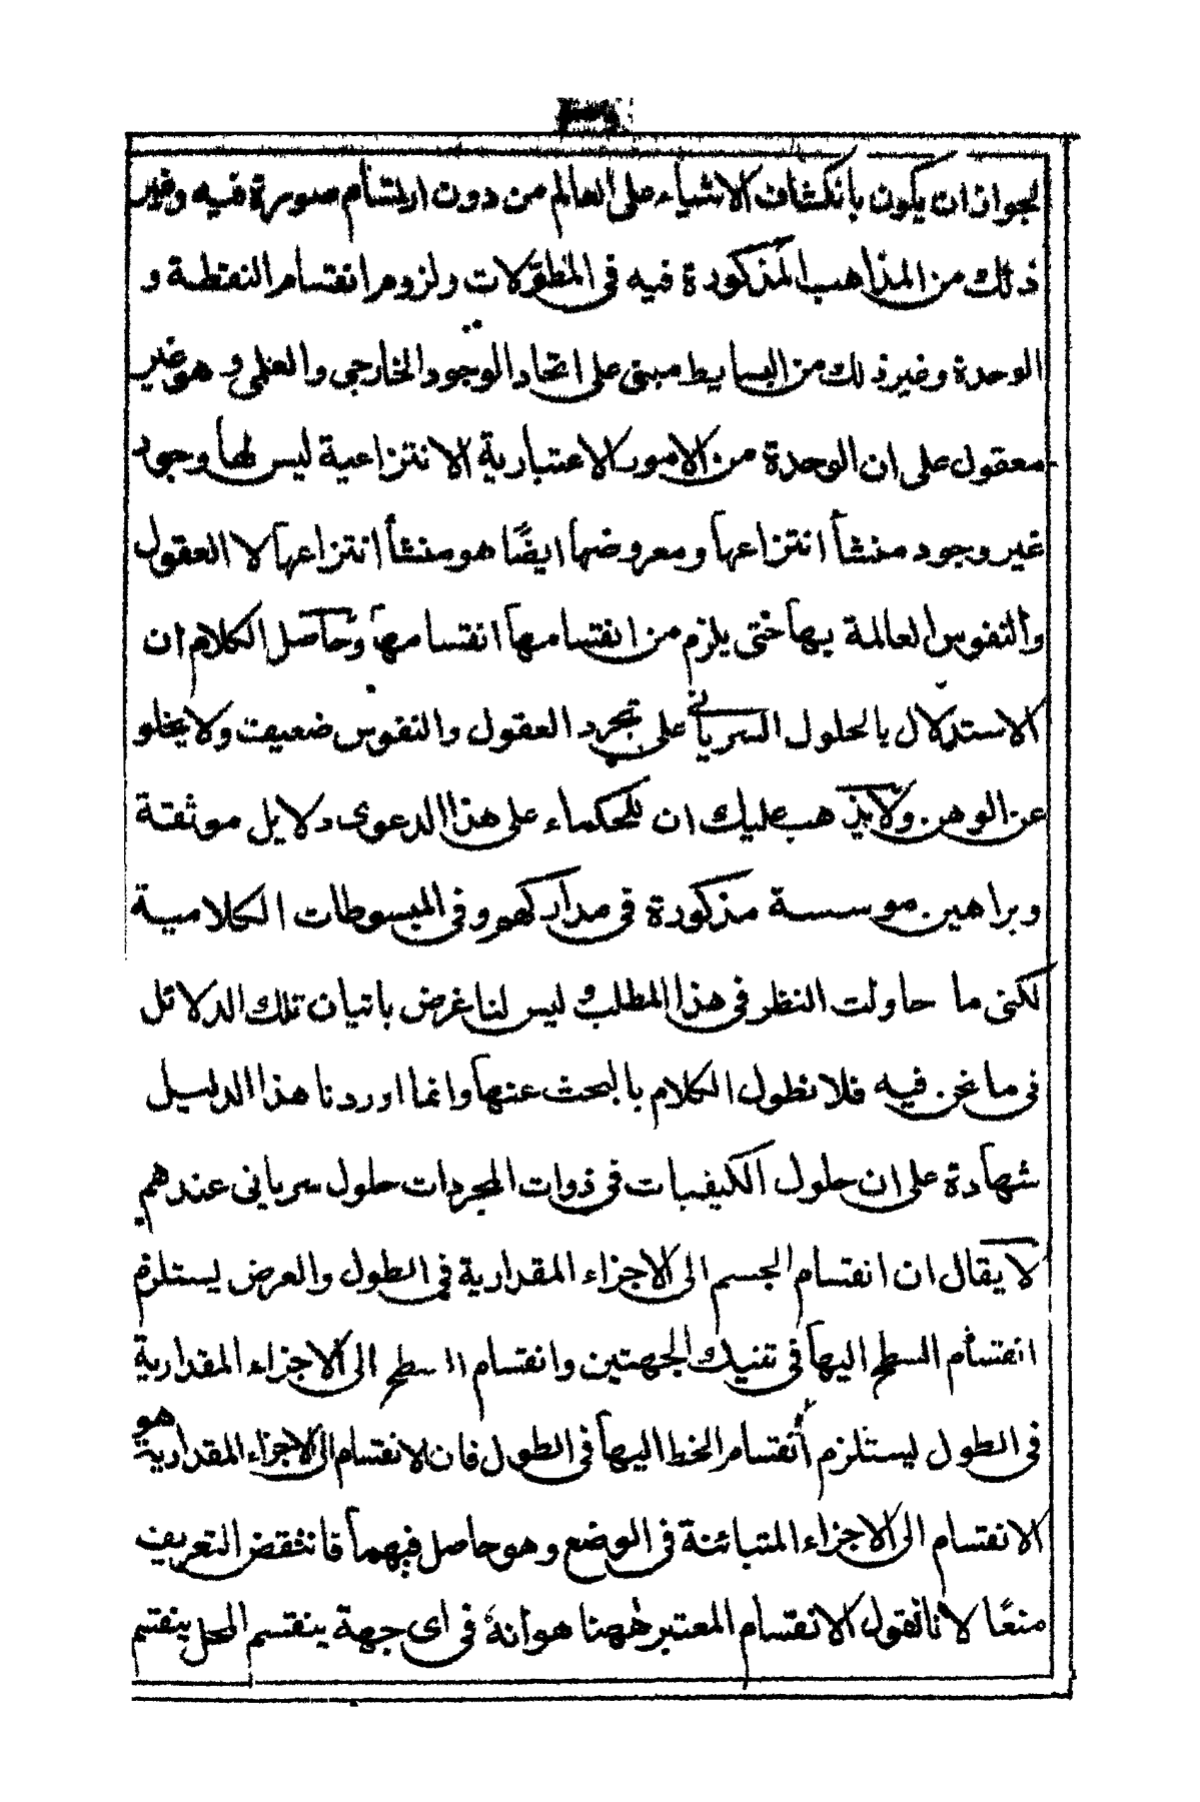 لجوازان يكون بانكشاف الاشياء على العالم من دون ارتسام صورة فيه وغير
ذلك من المذاهب المذكورة فيه فى المطولات ولزوم انقسام النقطة و
الوحدة وغير ذلك من البسايط مبنى على اتحاد الوجود الخارجى والعلمى وهو غير
معقول على ان الوحدة من الامور الاعتبارية الانتزاعية ليس لها وجود
غير وجود منشأ انتزاعها ومعروضها ايضًا هو منشأ انتزاعها لا العقول
والنفوس العالمة بها حتى يلزم من انقسامها انقسامها وحاصل الكلام ان
الاستدلال بالحلول السريانى على تجرد العقول والنفوس ضعيف ولا يخلو
عن الوهن ولا يذهب عليك ان للحكماء على هذا الدعوى دلايل موثقة
وبراهين موسسة مذكورة فى مداركهم وفى المبسوطات الكلامية
لكنى ما حاولت النظر فى هذا المطلب وليس لنا غرض باتيان تلك الدلائل
فى ما نحن فيه فلا نطول الكلام بالبحث عنها وانما اوردنا هذا الدليل
شهادة على ان حلول الكيفيات فى ذوات المجردات حلول سريانى عندهم
لا يقال ان انقسام الجسم الى الاجزاء المقدارية فى الطول والعرض يستلزم
انقسام السطح اليها فى تفنيك الجهتين وانقسام السطح الى الاجزاء المقدارية
فى الطول يستلزم انقسام الخط اليها فى الطول فان الانقسام الى الاجزاء المقدارية هو
الانقسام الى الاجزاء المتبائنة فى الوضع وهو حاصل فيهما فانتقض التعريف
منعًا لانا نقول الانقسام المعتبر ههنا هو انه فى اى جهة ينقسم المحل ينقسم